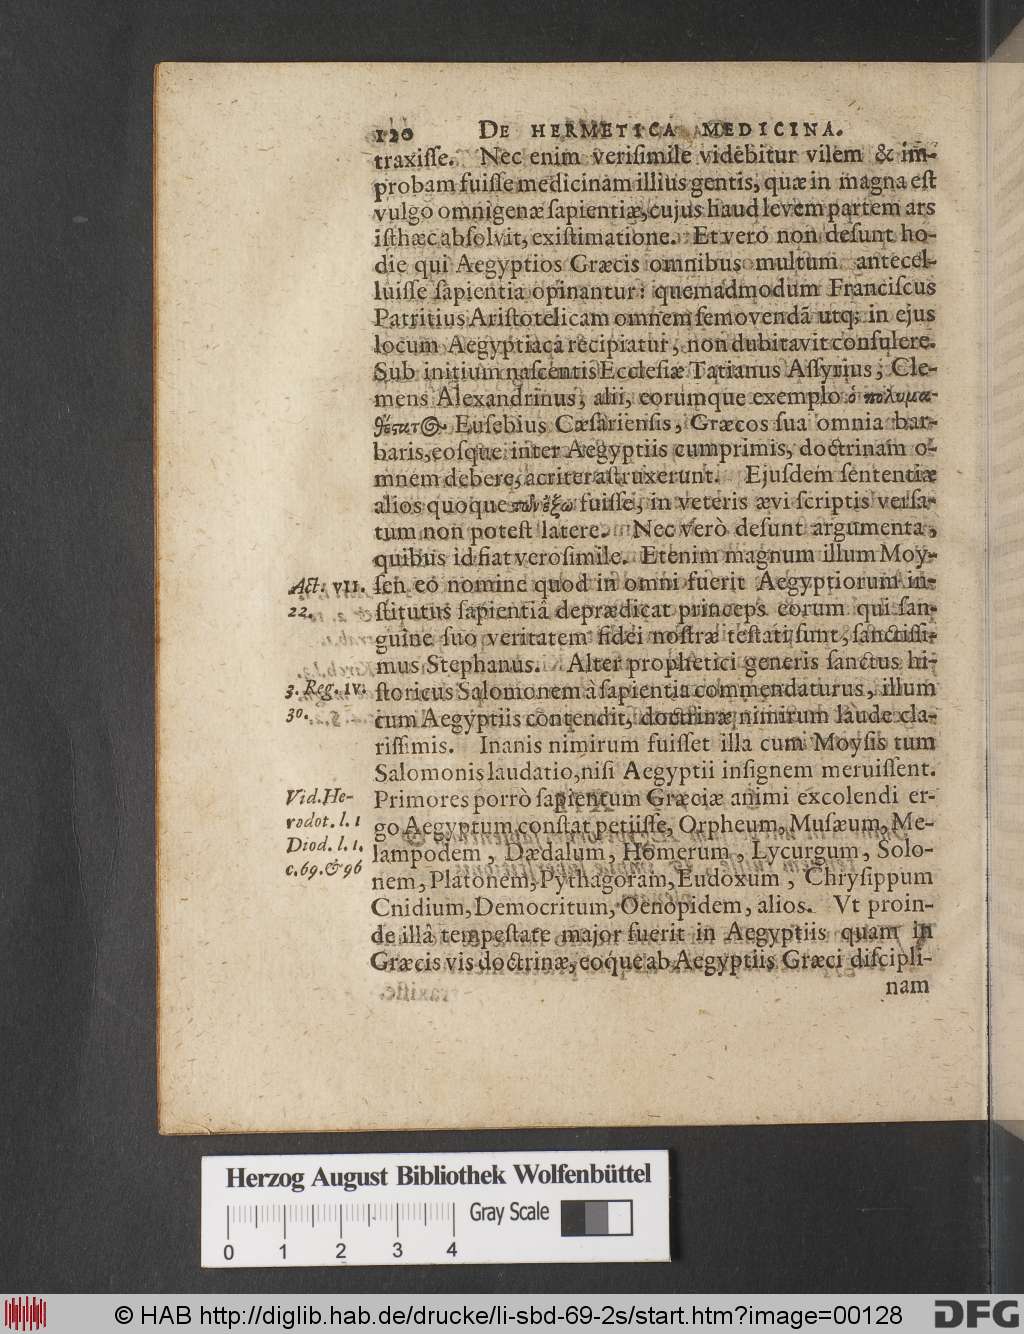 120 DE HERMETICA MEDICINA.
traxiſſe. Nec enim veriſimile videbitur vilem & im-
probam fuiſſe medicinam illius gentis, quæ in magna eſt
vulgo omnigenæ ſapientiæ, cujus haud levem partem ars
iſthæc abſolvit, exiſtimatione. Et vero non deſunt ho-
die qui Aegyptios Græcis omnibus multum antecel-
luiſſe ſapientia opinantur: quemadmodum Franciſcus
Patritius Ariſtotelicam omnem ſemovendã utq; in ejus
locum Aegyptiaca recipiatur, non dubitavit conſulere.
Sub initium naſcentis Eccleſiæ Tatianus Aſſyrius, Cle-
mens Alexandrinus, alii, eorumque exemplo ὁ πολυμα-
θέςατ Euſebius Cæſarienſis, Græcos ſua omnia bar-
baris, eoſque inter Aegyptiis cumprimis, doctrinam o-
mnem debere, acriter aſtruxerunt. Ejuſdem ſententiæ
alios quoque fuiſſe, in veteris ævi ſcriptis verſa-
tum non poteſt latere. Nec verò deſunt argumenta,
quibus id fiat veroſimile. Etenim magnum illum Moy-
Act. VII. ſen eo nomine quod in omni fuerit Aegyptiorum in-
22. ſtitutus ſapientiâ deprædicat princeps eorum qui ſan-
guine ſuo veritatem fidei noſtræ teſtati ſunt, ſanctiſſi-
mus Stephanus. Alter prophetici generis ſanctus hi-
3. Reg. IV. ſtoricus Salomonem â ſapientia commendaturus, illum
30. cum Aegyptiis contendit, doctrinæ nimirum laude cla-
riſſimis. Inanis nimirum fuiſſet illa cum Moyſis tum
Salomonis laudatio, niſi Aegyptii inſignem meruiſſent.
Vid. He- Primores porrò ſapientum Græciæ animi excolendi er-
rodot. l. 1 go Aegyptum conſtat petiiſſe, Orpheum, Muſæum, Me-
Diod. l. 1. lampodem, Dædalum, Homerum, Lycurgum, Solo-
c. 69. & 96 nem, Platonem, Pythagoram, Eudoxum, Chryſippum
Cnidium, Democritum, Oenopidem, alios. Vt proin-
de illâ tempeſtate major fuerit in Aegyptiis quam in
Græcis vis doctrinæ, eoque ab Aegyptiis Græci diſcipli-
nam
Herzog August Bibliothek Wolfenbüttel
Gray Scale
0 1 2 3 4
© HAB http://diglib.hab.de/drucke/li-sbd-69-2s/start.htm?image=00128
DFG